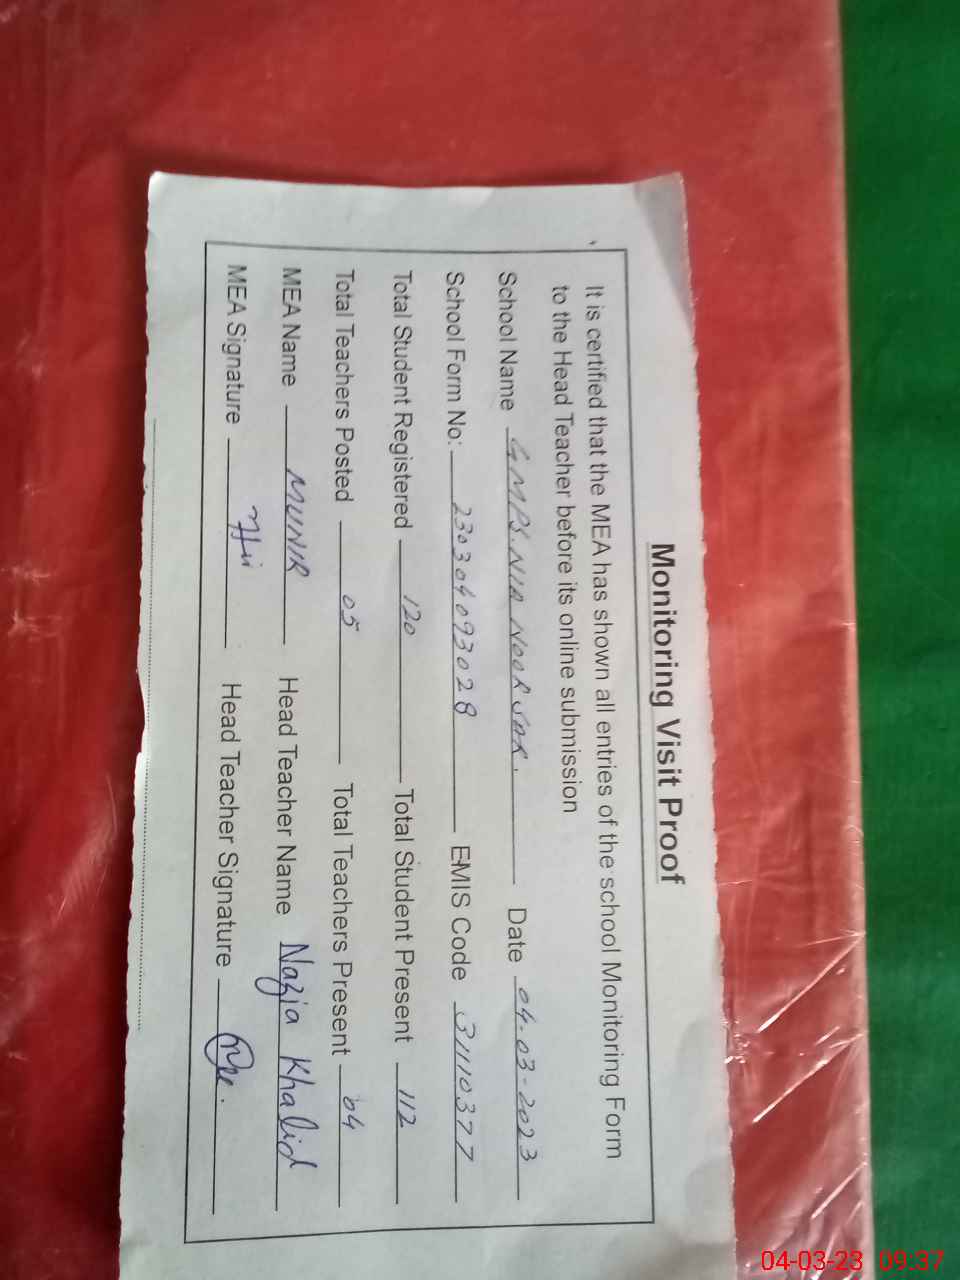 Monitoring Visit Proof
It is certified that the MEA has shown all entries of the school Monitoring Form
to the Head Teacher before its online submission
School Name GMPS. NIA NOOR SAR. Date 04.03-2023
School Form No: 230304093028 EMIS Code 31110377
Total Student Registered 120 Total Student Present 112
Total Teachers Posted 05 Total Teachers Present 04
MEA Name MUNIR Head Teacher Name Nazia Khalid
MEA Signature Head Teacher Signature
04-03-23 09:37